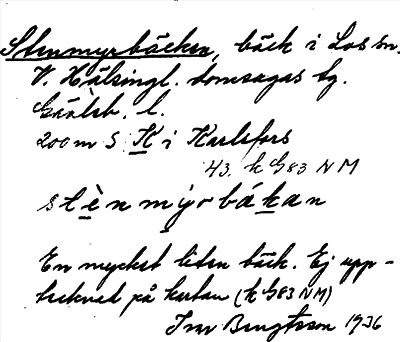 Stenmyrbäcken, bäck i Los sn.
V. Hälsingl. domsagas tg.
Gävleb. l.
200 m S K i Karlsfors
43. k G83 NM
stènmýrbákan
En mycket liten bäck. Ej upp-
tecknad på kartan (k G83 NM)
Ivar Bengtsson 1936